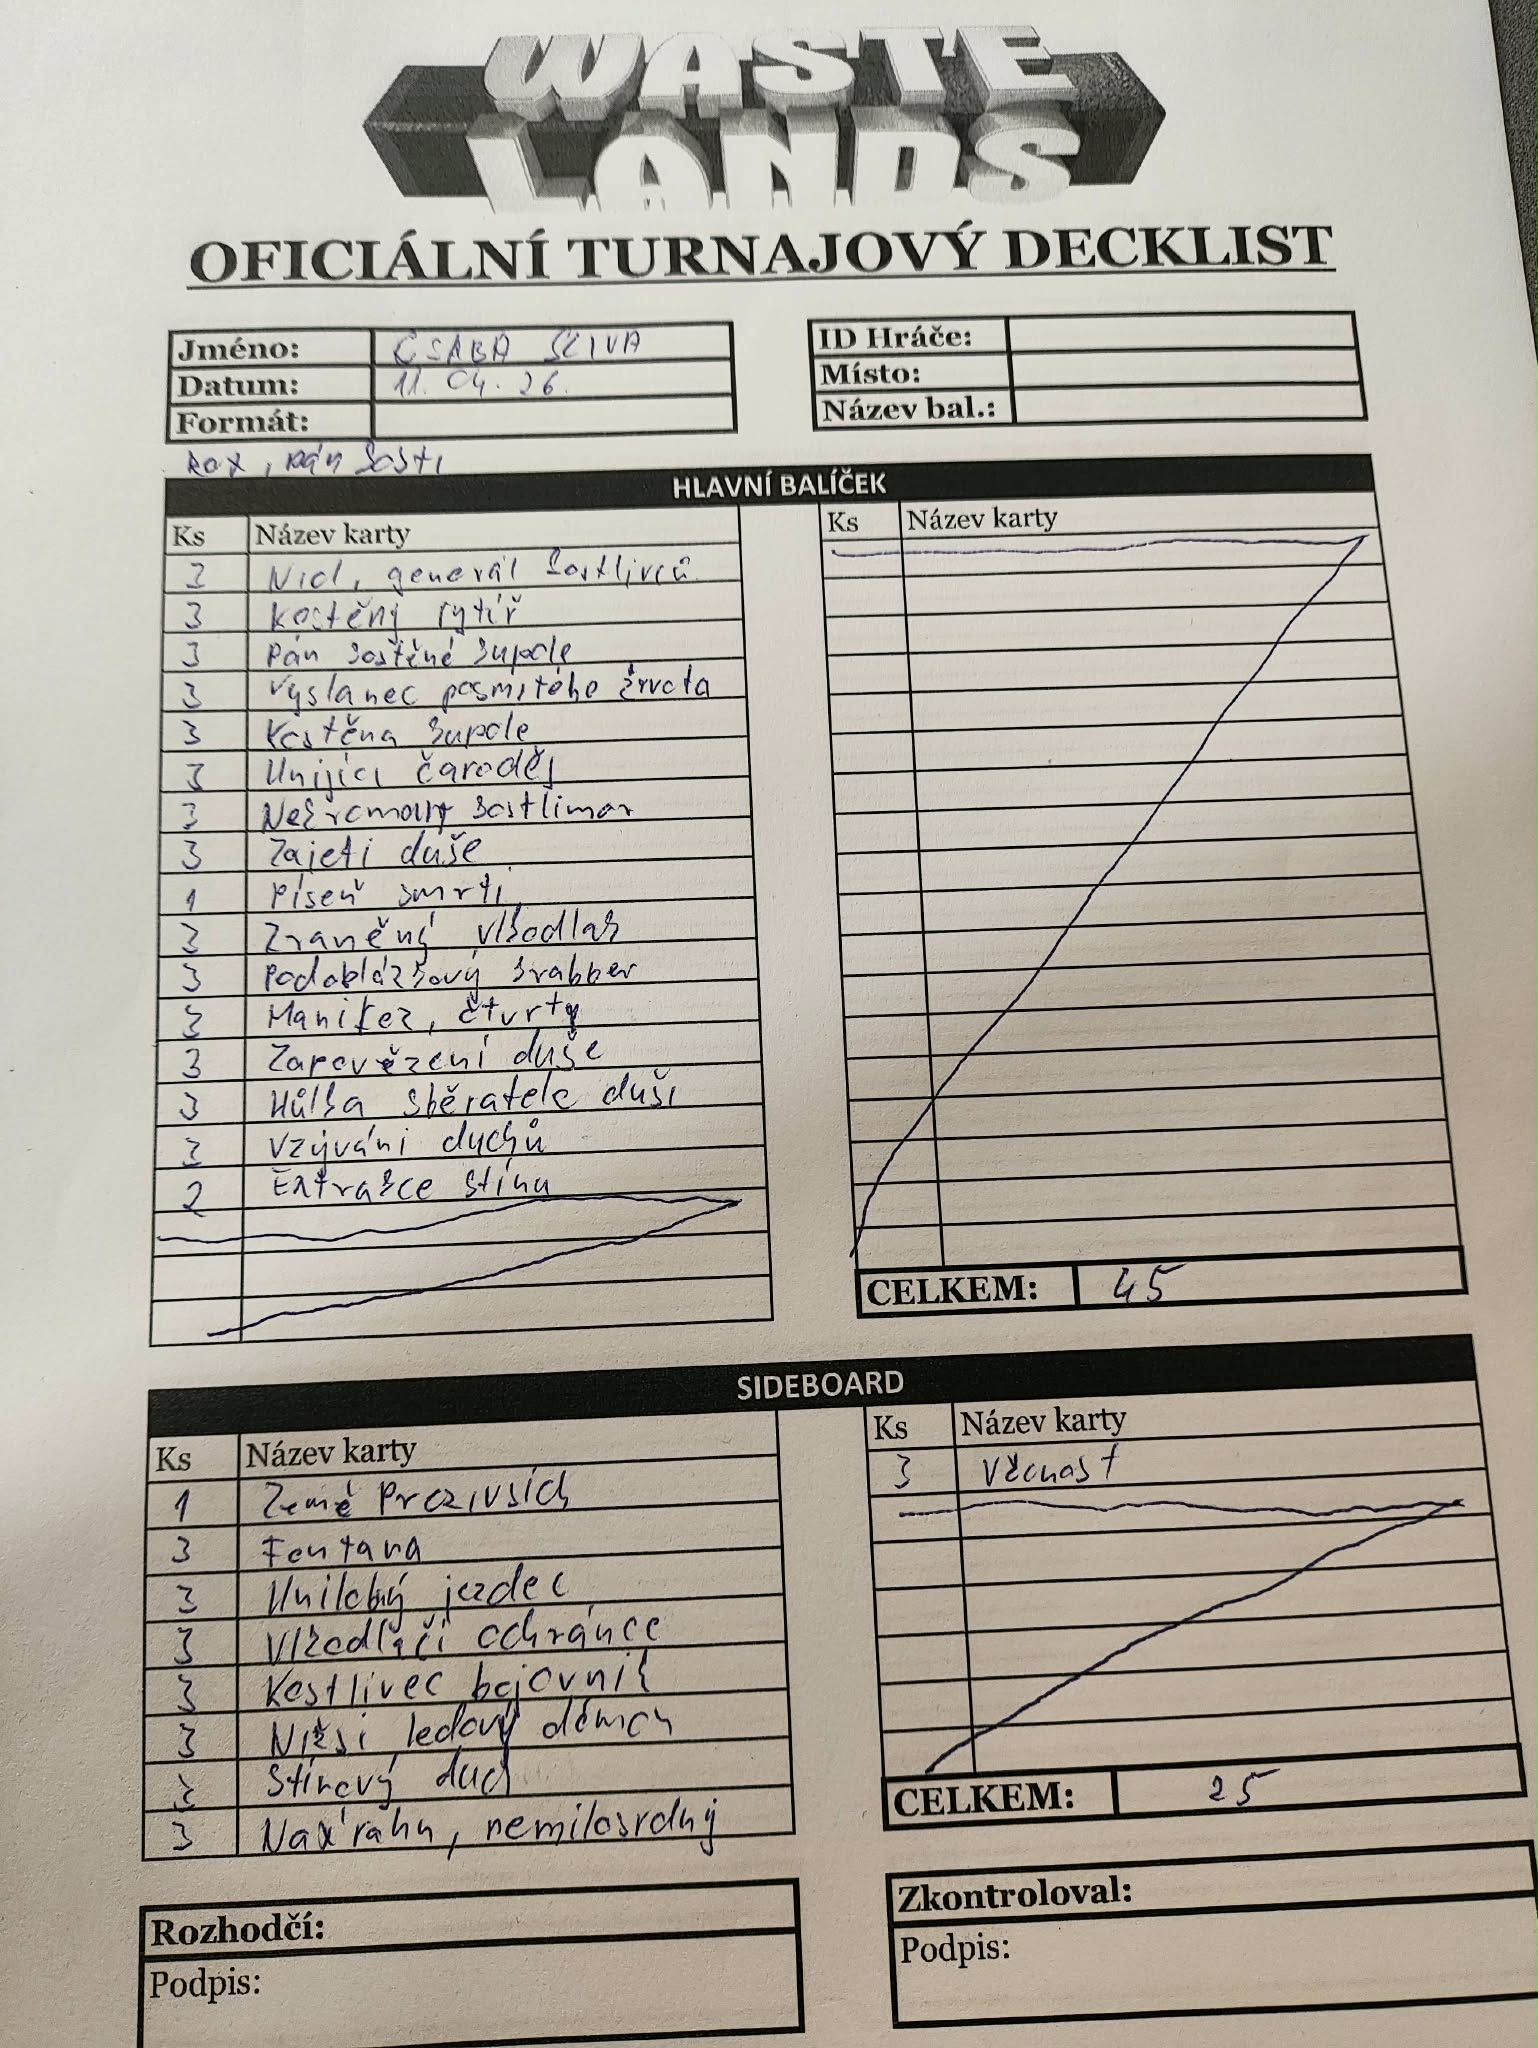 WASTE
LANDS
OFICIÁLNÍ TURNAJOVÝ DECKLIST
Jméno: CSABA SLIVA
Datum: 11. 04. 26.
Formát:
ID Hráče:
Místo:
Název bal.:
Rox, pán kostí
HLAVNÍ BALÍČEK
Ks Název karty
3 generál kostlivců
3 Kostěný rytíř
3 Pán kostěné kupole
3 Vyslanec posmrtého života
3 Kostěna kupole
3 Unijíci čaroděj
3 Nekromant kostlimar
3 Zajetí duše
1 Píseň smrti
3 Zraněný vlkodlak
3 Podoblázkový krabber
3 čtvrtý
3 Zapovězení duše
3 Hůlka sběratele duší
3 Vzývání duchů
2 Extrakce stínu
Ks Název karty
CELKEM: 45
SIDEBOARD
Ks Název karty
1 Země Prozivsich
3 Fontana
3 jezdec
3 Vlkodlačí ochránce
3 Kostlivec bojovník
3 Nižsi ledový démon
3 Stínový duch
3 Nax'rahn, nemilosrdný
Ks Název karty
3 Věčnost
CELKEM: 25
Rozhodčí:
Podpis:
Zkontroloval:
Podpis: